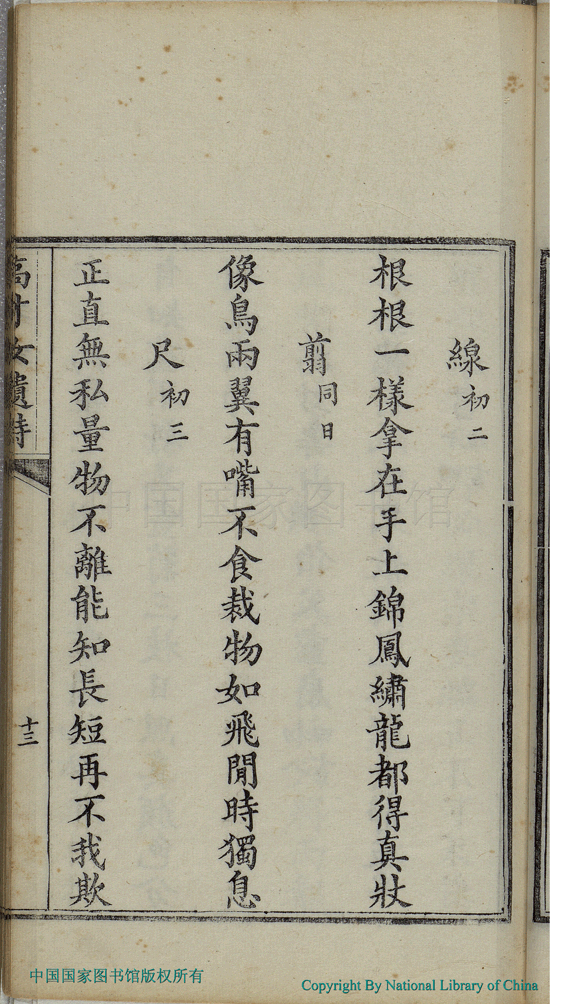 線初二
根根一樣拿在手上錦鳳繡龍都得真狀
翦同日
像鳥兩翼有嘴不食裁物如飛閒時獨息
尺初三
正直無私量物不離能知長短再不我欺
高才女遺詩
十三
中国国家图书馆
中国国家图书馆版权所有
Copyright By National Library of China